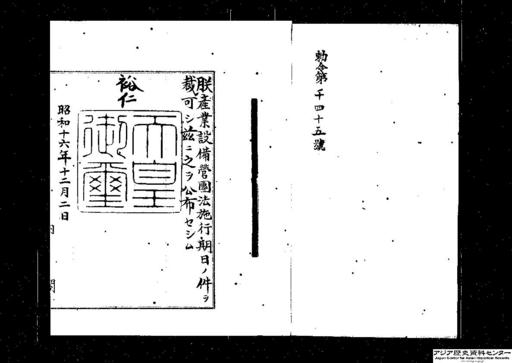 勅令第千四十五號
朕產業設備營團法施行期日ノ件ヲ
裁可シ茲ニ之ヲ公布セシム
裕仁
天皇御璽
昭和十六年十二月二日
内閣
アジア歴史資料センター
Japan Center for Asian Historical Records